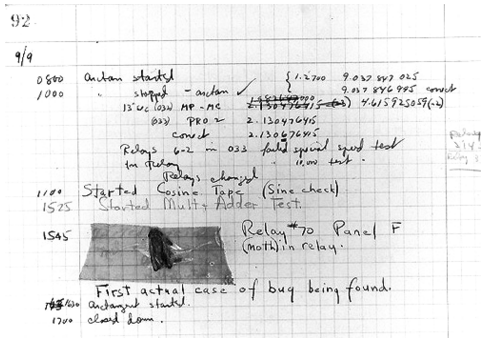 92
9/9
0800 Antan started
1000 " stopped - antan ✓ { 1.2700 9.037 847 025
9.037 846 995 correct
13"UC (032) MP-MC 2.130476415 (-3) 4.615925059(-2)
(033) PRO 2 2.130476415
correct 2.130676415
Relays 6-2 in 033 failed special speed test
in Relay " 10,000 test .
Relays changed
1100 Started Cosine Tape (Sine check)
1525 Started Mult + Adder Test.
1545 Relay #70 Panel F
(moth) in relay.
First actual case of bug being found.
1630 Antangent started.
1700 closed down.